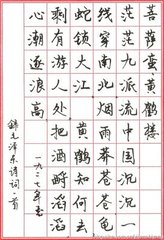 菩萨蛮黄鹤楼
茫茫九派流中国沉沉一
线穿南北烟雨莽苍苍龟
蛇锁大江黄鹤知何去
剩有游人处把酒酹滔滔
心潮逐浪高
一九二七年春
录毛泽东诗词一首